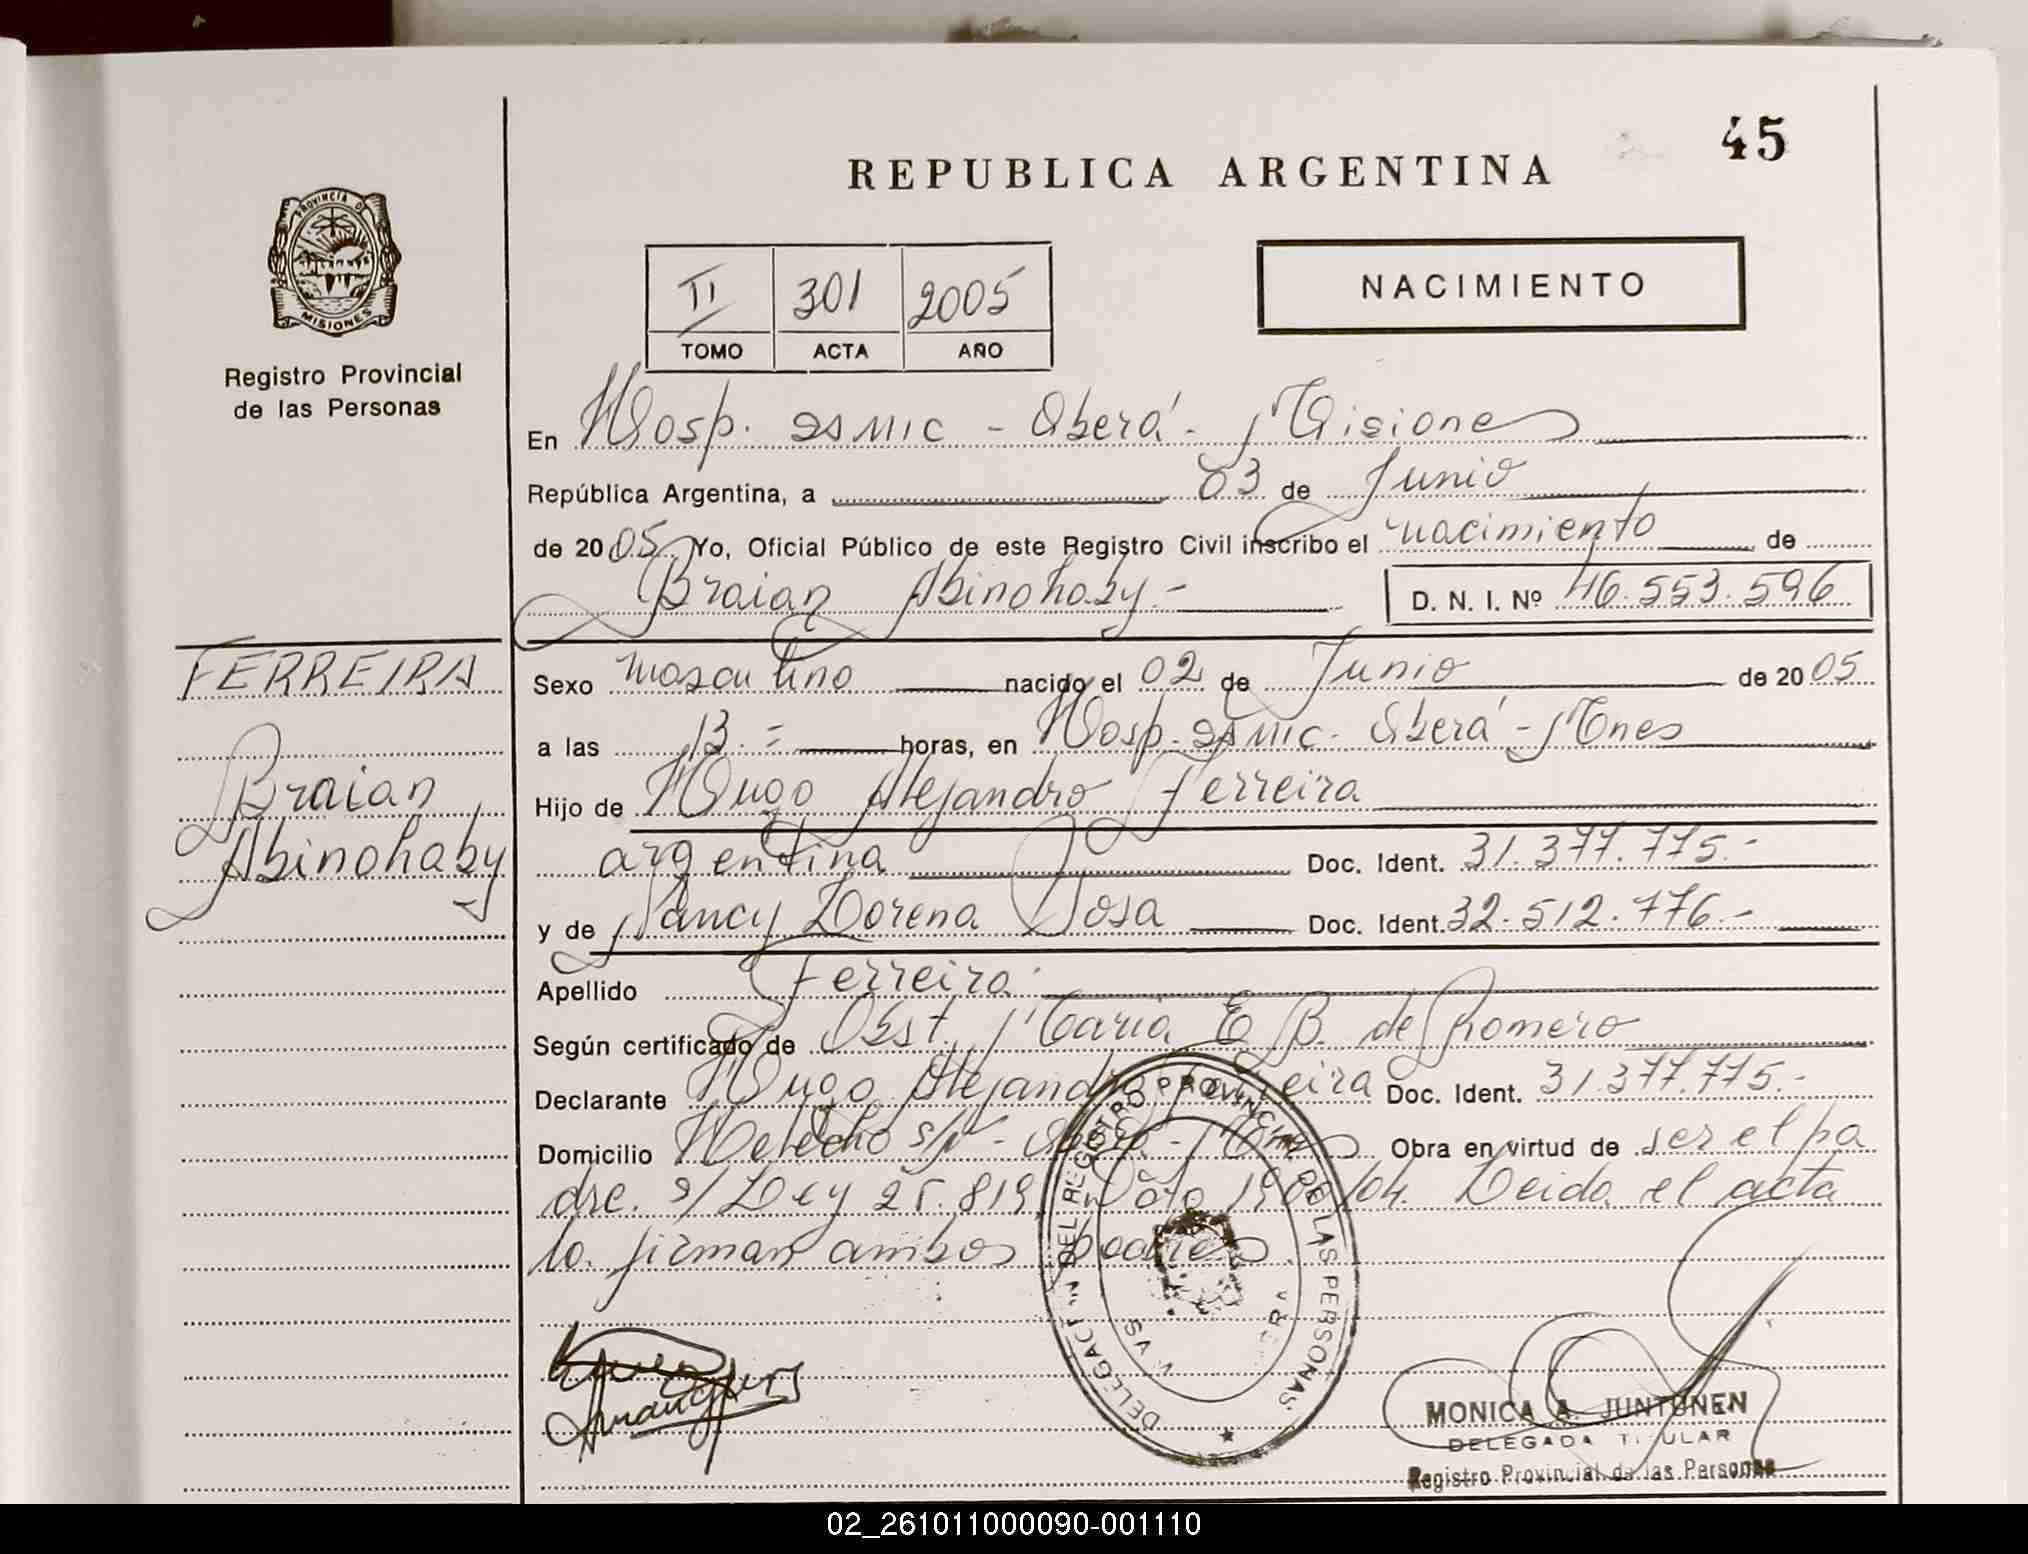 45
REPUBLICA ARGENTINA
PROVINCIA DE
MISIONES
Registro Provincial
de las Personas
II 301 2005
TOMO ACTA AÑO
NACIMIENTO
En Hosp. SAMIC - Oberá - Misiones
República Argentina, a 03 de Junio
de 2005 Yo, Oficial Público de este Registro Civil inscribo el nacimiento de
Braian Abinohaby.-
D. N. I. Nº 46.553.596
FERREIRA
Braian
Abinohaby
Sexo masculino nacido el 02 de Junio de 2005
a las 13.= horas, en Hosp. SAMIC - Oberá - Mnes
Hijo de Hugo Alejandro Ferreira
argentina Doc. Ident. 31.377.775.-
y de Nancy Lorena Sosa Doc. Ident. 32.512.776.-
Apellido Ferreira
Según certificado de Obst. Maria E B. de Romero
Declarante Hugo Alejandro Ferreira Doc. Ident. 31.377.775.-
Domicilio Helecho s/n - Oberá - Mnes Obra en virtud de ser el pa
dre. s/ Ley 25.819, Leida el acta
la firman ambos padres.
DELEGACIÓN DEL REGISTRO PROVINCIAL DE LAS PERSONAS
MONICA A. JUNTUNEN
DELEGADA TITULAR
Registro Provincial de las Personas
02_261011000090-001110